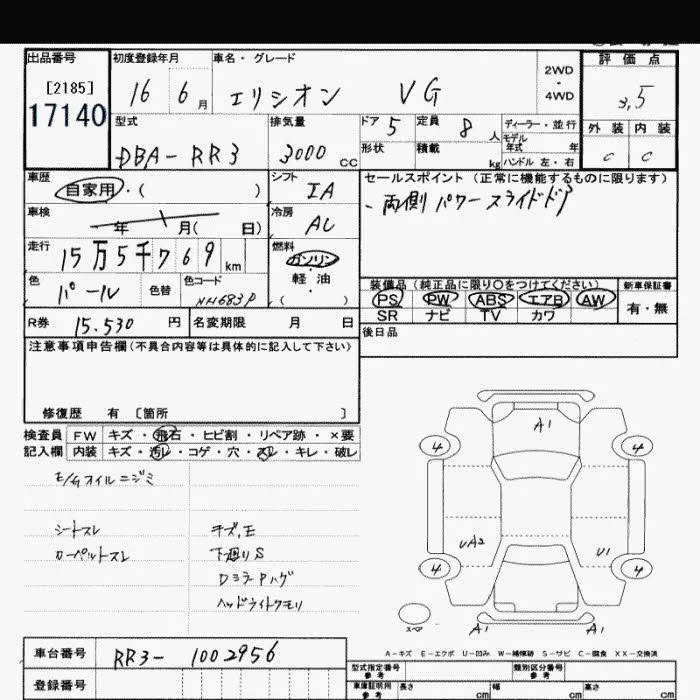 出品番号
[2185]
17140
初度登録年月
16 6 月
車名・グレード
エリシオン VG
2WD
・
4WD
評価点
3,5
外装 内装
C C
型式
DBA-RR3
排気量
3000 CC
ドア 5
形状
定員 8 人
積載 kg
ディーラー・並行
モデル
年式 年
ハンドル 左・右
車歴
自家用・( )
シフト
IA
車検
年 月( 日)
冷房
AC
走行
15万5千769 km
燃料
ガソリン
・
軽油
・
( )
色
パール
色替
色コード
NH683P
R券 15.530 円
名変期限 月 日
セールスポイント (正常に機能するものに限ります)
、両側パワースライドドア
装備品(純正品に限り○をつけてください)
PS PW ABS エアB AW
SR ナビ TV カワ
新車保証書
有・無
後日品
注意事項申告欄(不具合内容等は具体的に記入して下さい)
修復歴 有 [箇所 ]
検査員
記入欄
FW キズ・飛石・ヒビ割・リペア跡・×要
内装 キズ・汚レ・コゲ・穴・スレ・キレ・破レ
E/Gオイルニジミ
シートスレ
カーペットスレ
キズ,E
下廻りS
DミラーPハゲ
ヘッドライトクモリ
A1
4 4
UA2 U1
4 4
スペア
A1 A1
A-キズ E-エクボ U-凹み W-補修跡 S-サビ C-腐食 XX-交換済
車台番号 RR3-1002956
登録番号
型式指定番号
参考
類別区分番号
参考
車庫証明用
参考
長さ cm
幅 cm
高さ cm